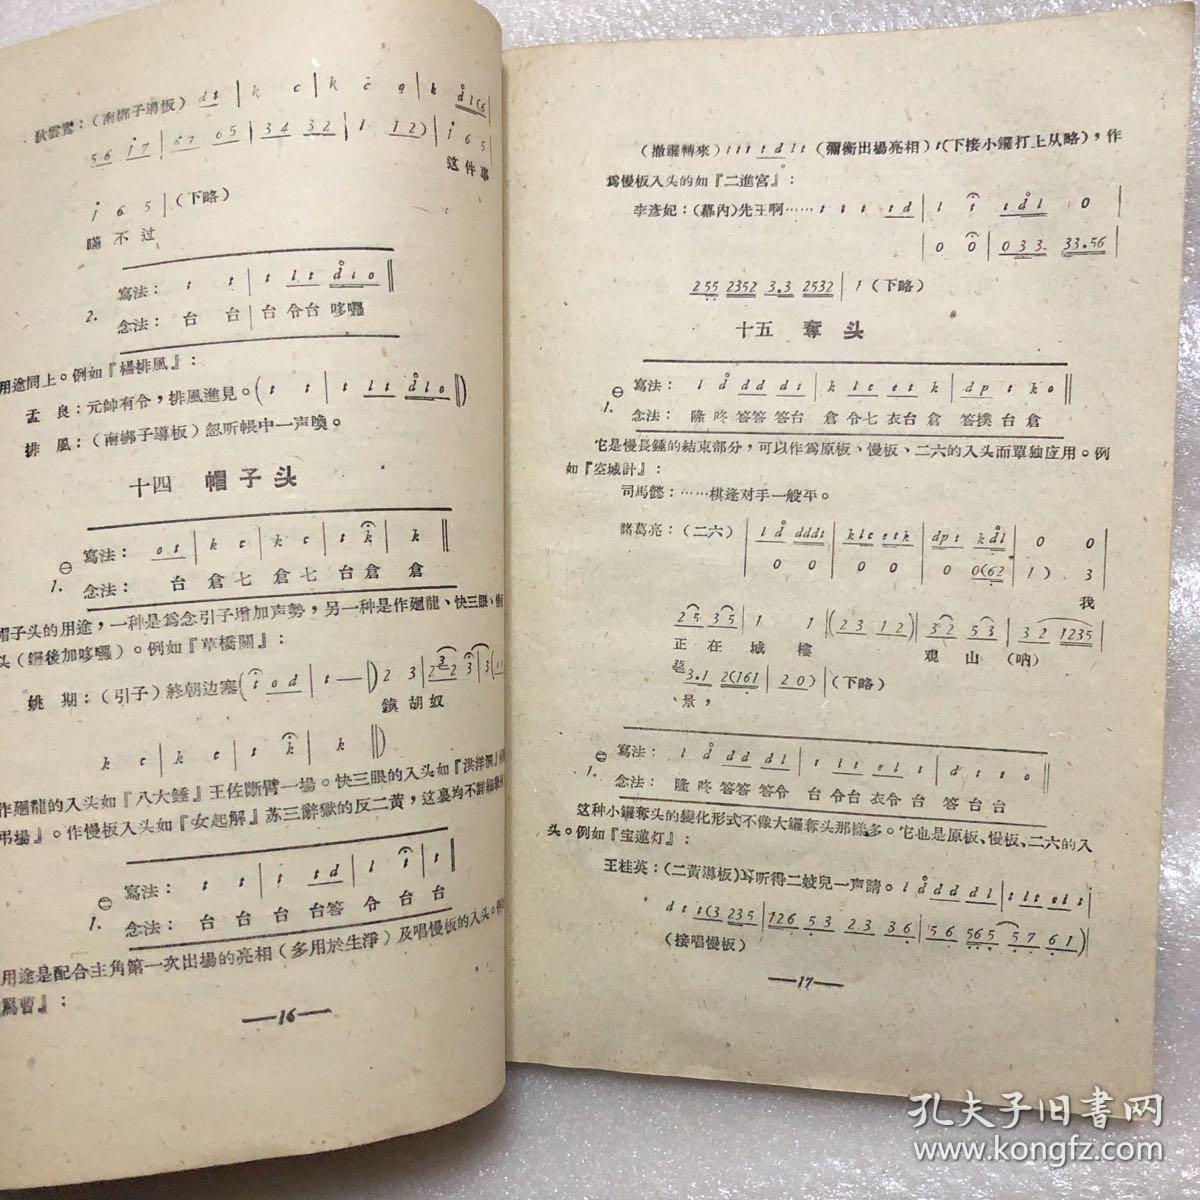 狄雲鸞：（南梆子導板） dt | k c | k c g | k d l (6
56 i7 | 67 65 | 34 32 | 1 12) | i 65
这件事
i 6 5 | （下略）
瞞不过
寫法： t t | t l t d l o ‖
2.
念法： 台 台 | 台 令台 哆囉
用途同上。例如『楊排風』：
孟 良：元帥有令，排風進見。( t t | t l t d l o ‖)
排 風：（南梆子導板）忽听帳中一声喚。
十四 帽子头
寫法： o t | k c | k c | t k | k ‖
㊀ 1.
念法： 台 倉 七 倉 七 台 倉 倉
帽子头的用途，一种是爲念引子增加声勢，另一种是作廻龍、快三眼、
头（鑼後加哆囉）。例如『草橋關』：
姚 期：（引子）終朝边塞 ( t o d | t — ) 2 3 | 2 3 2 3 | 3 (
鎮胡奴
k c | k c | t k | k ‖)
作廻龍的入头如『八大錘』王佐斷臂一場。快三眼的入头如『洪洋洞』
吊場』。作慢板入头如『女起解』苏三辭獄的反二黄，这裏均不詳細舉
寫法： t t | t t d | l t | t ‖
㊀ 1.
念法： 台 台 台 台答 令 台 台
用途是配合主角第一次出場的亮相（多用於生淨）及唱慢板的入头。
罵曹』：
—16—
（撤鑼轉來） t t t t d l t （彌衡出場亮相） t （下接小鑼打上从略），作
爲慢板入头的如『二進宮』：
李彥妃：（幕內）先王啊…… t t t t d | l t t d l 0
| 0 0 | 0 3 3 33.56 |
255 2352 3.3 2532 | 1 （下略）
十五 奪 头
寫法： l d dd dt | k l c c t k | d p t k o ‖
㊀ 1.
念法： 隆 咚 答答 答台 倉 令七 衣台 倉 答撲 台 倉
它是慢長錘的結束部分，可以作爲原板、慢板、二六的入头而單独应用。例
如『空城計』：
司馬懿：……棋逢对手一般平。
諸葛亮：（二六） | l d dddt | k l c c t k | d p t k d l | 0 0
0 0 | 0 0 | 0 0(62 | 1) 3
我
25 35 | 1 1 | (23 12) | 32 53 | 32 1235 |
正在城樓 观山（吶）
3.1 2(161 | 20) | （下略）
景，
寫法： l d dd d l | t l t c l t | d t t o ‖
㊀ 1.
念法： 隆 咚 答答 答令 台 令台 衣令 台 答 台 台
这种小鑼奪头的變化形式不像大鑼奪头那樣多。它也是原板、慢板、二六的入
头。例如『宝蓮灯』：
王桂英：（二黃導板）耳听得二姣兒一声請。 l d dd d l | t l t c l t |
d t t(3 235 | 126 53 23 36 | 56 565 57 61) |
（接唱慢板）
—17—
孔夫子旧書网
www.kongfz.com